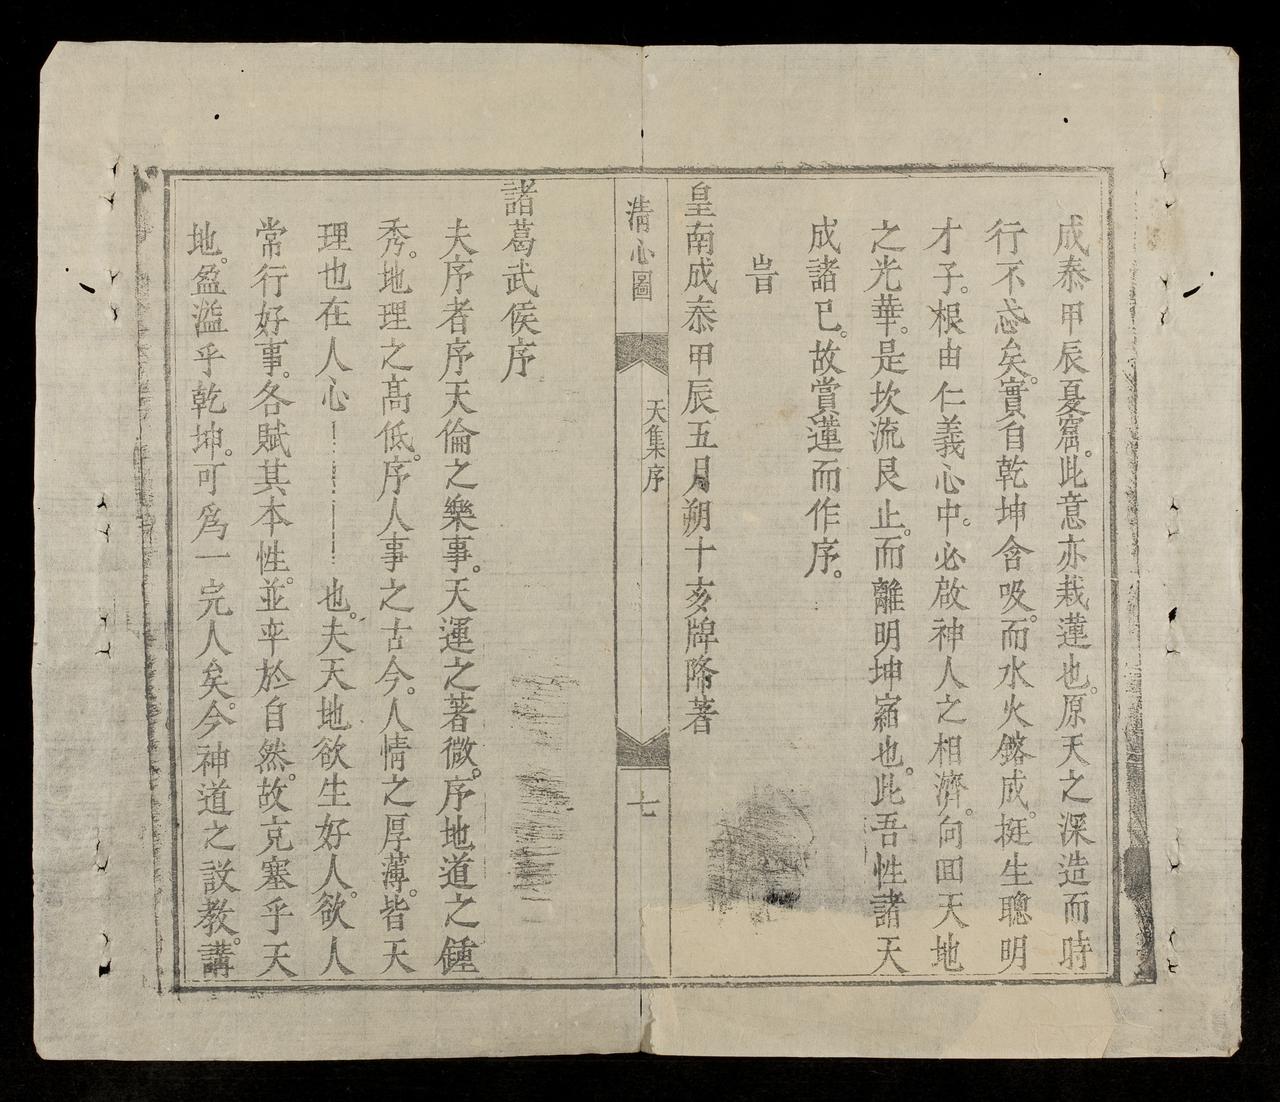 成泰甲辰夏窩。此意亦栽蓮也。原天之深造而時
行不忒矣。實自乾坤含吸。而水火鎔成。挺生聰明
才子。根由仁義心中。必啟神人之相濟。向回天地
之光華。是坎流艮止。而離明坤𡩋也。此吾性諸天
成諸已。故賞蓮而作序。
旹
皇南成泰甲辰五月朔十亥牌降著
清心圖
天集序
七
諸葛武侯序
夫序者序天倫之樂事。天運之著微。序地道之鍾
秀。地理之高低。序人事之古今。人情之厚薄。皆天
理也在人心也。夫天地欲生好人。欲人
常行好事。各賦其本性。並平於自然。故克塞乎天
地。盈溢乎乾坤。可爲一完人矣。今神道之設教。講